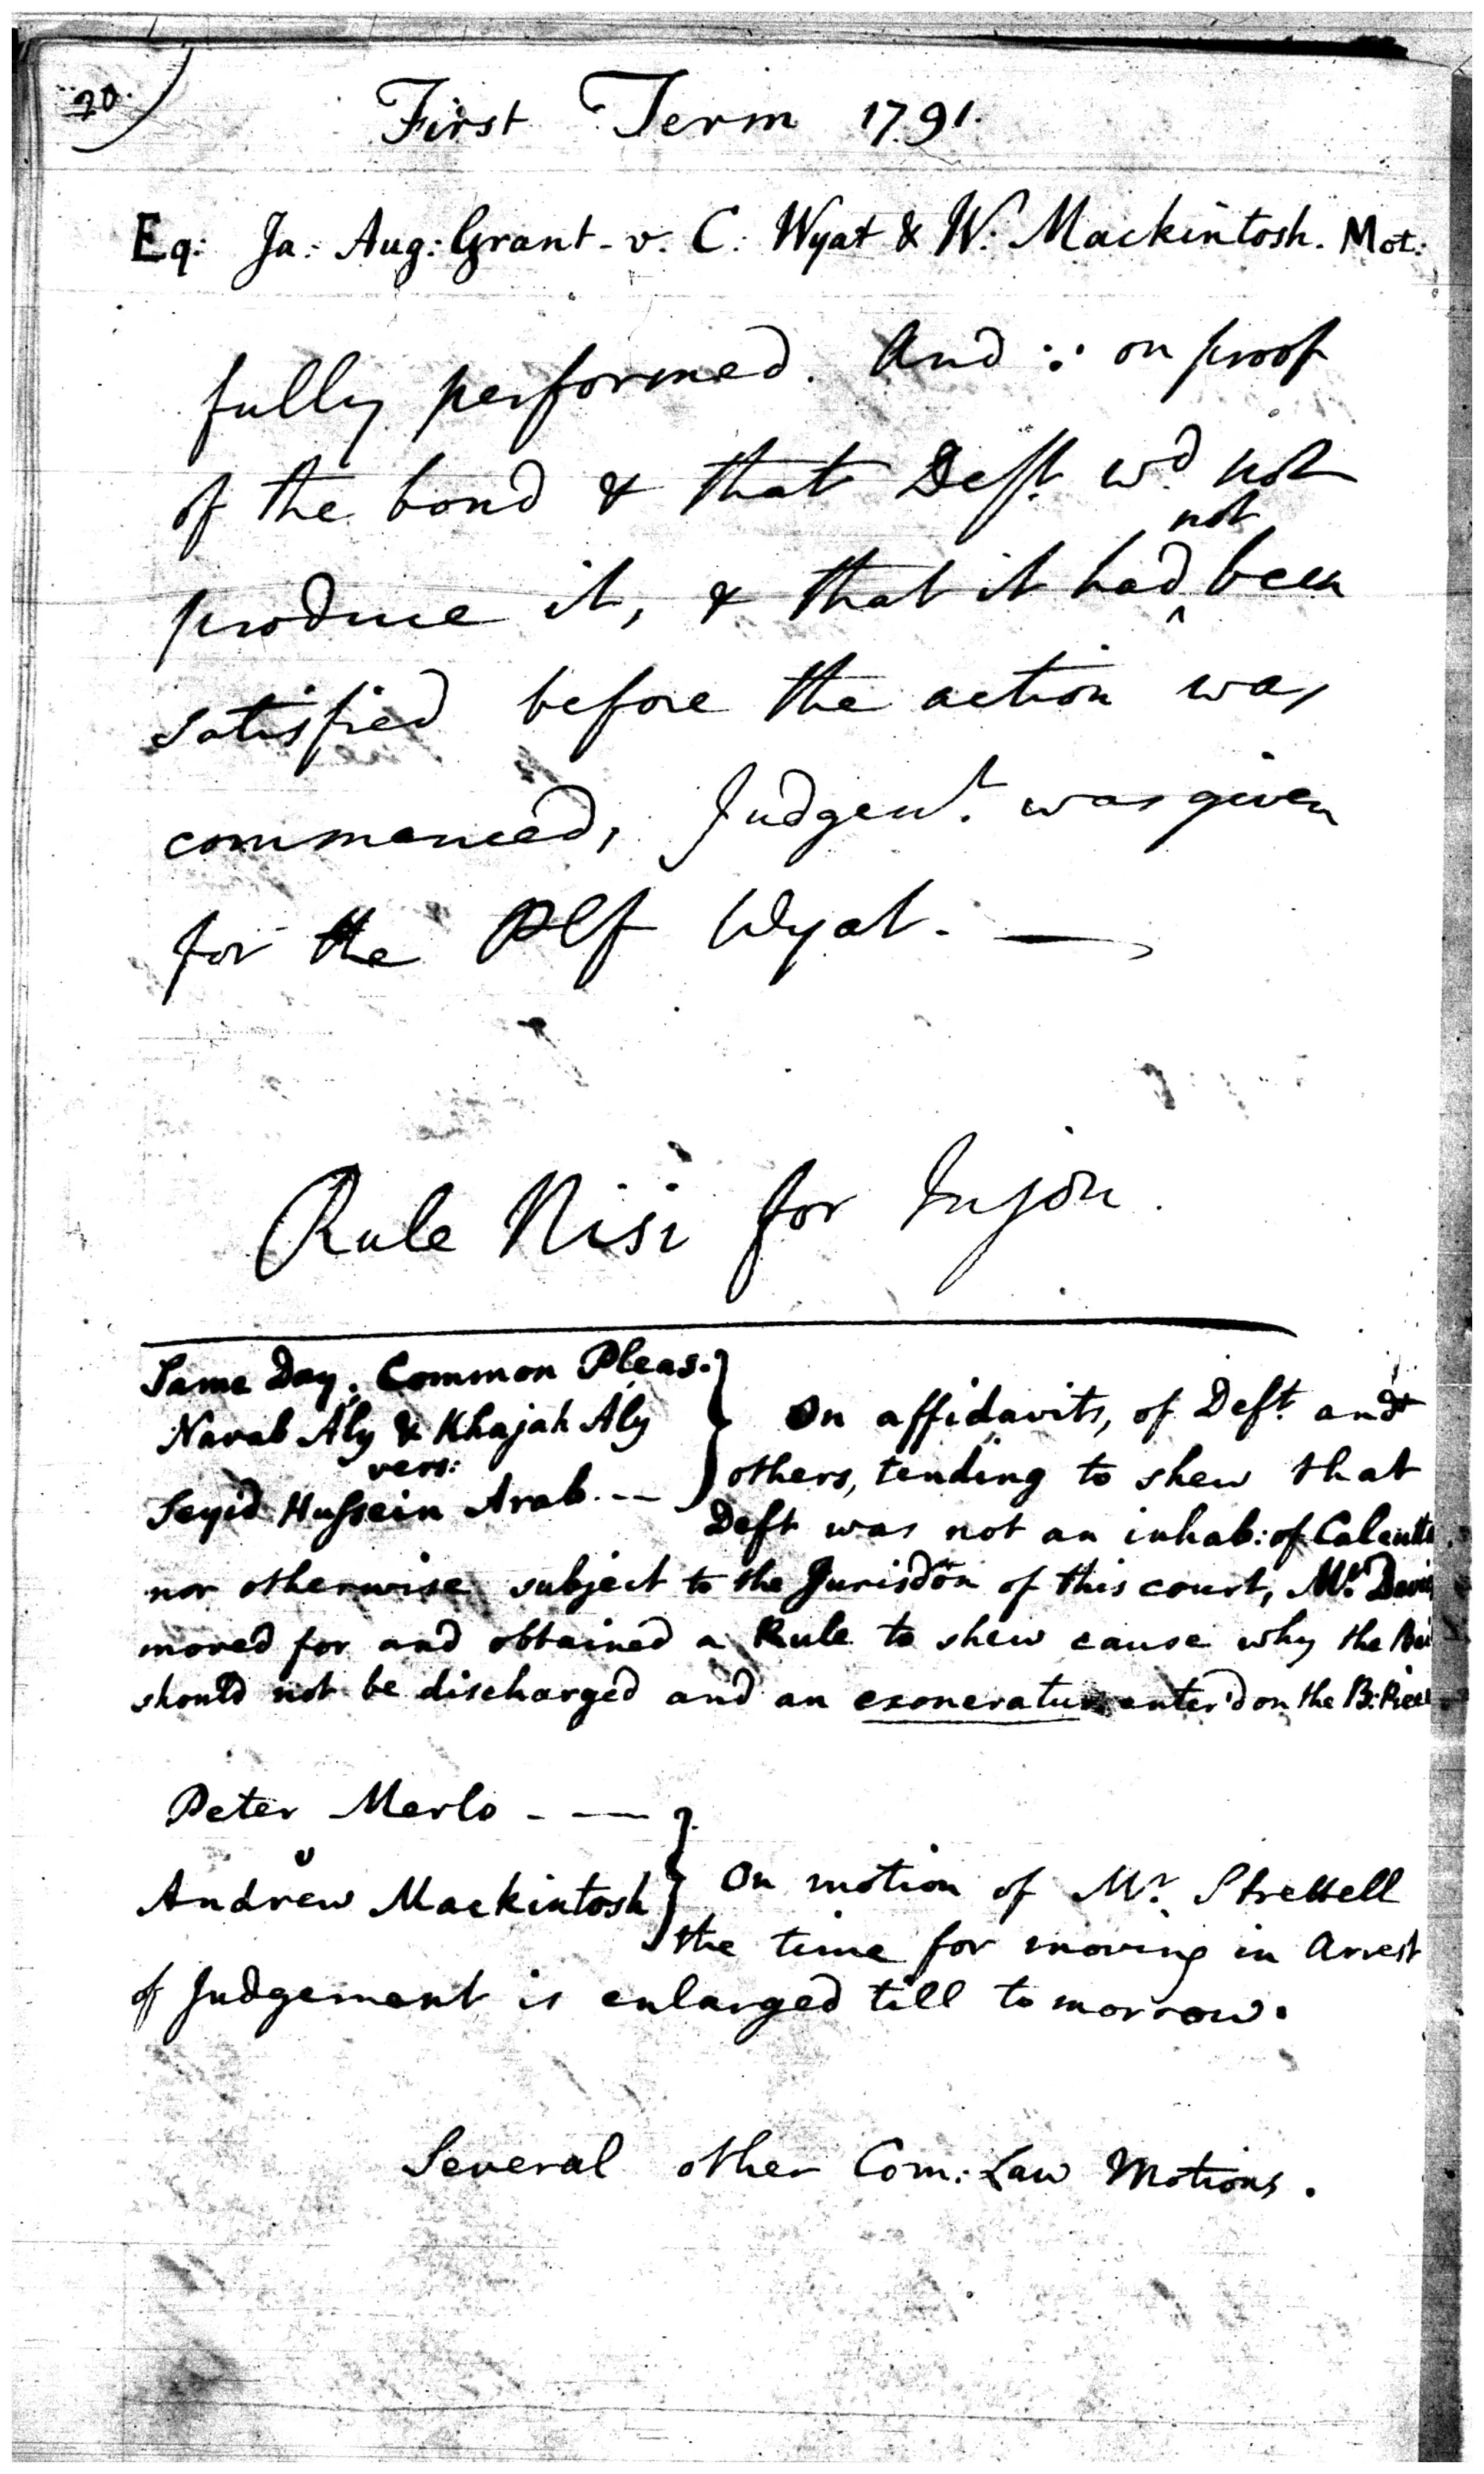 20.
First Term 1791.
Eq: Ja: Aug: Grant - v. C: Wyat & W: Mackintosh. Mot:
fully performed. And ∵ on proof
of the bond & that Deft. wd. not
produce it, & that it had not been
satisfied before the action was
commenced, Judgemt. was given
for the Plf Wyat. —
Rule Nisi for Injon.
Same Day. Common Pleas.
Navab Aly & Khajah Aly
vers:
Seyid Hussein Arab. —
On affidavits, of Deft. and
others, tending to shew that
Deft was not an inhab: of Calcutta
nor otherwise subject to the Jurisdon of this court, Mr. Davis
moved for and obtained a Rule to shew cause why the
should not be discharged and an exoneratur enter'd on the B: Piece
Peter Merlo - —
v
Andrew Mackintosh
On motion of Mr. Strettell
the time for moving in Arrest
of Judgement is enlarged till tomorrow.
Several other Com: Law Motions.